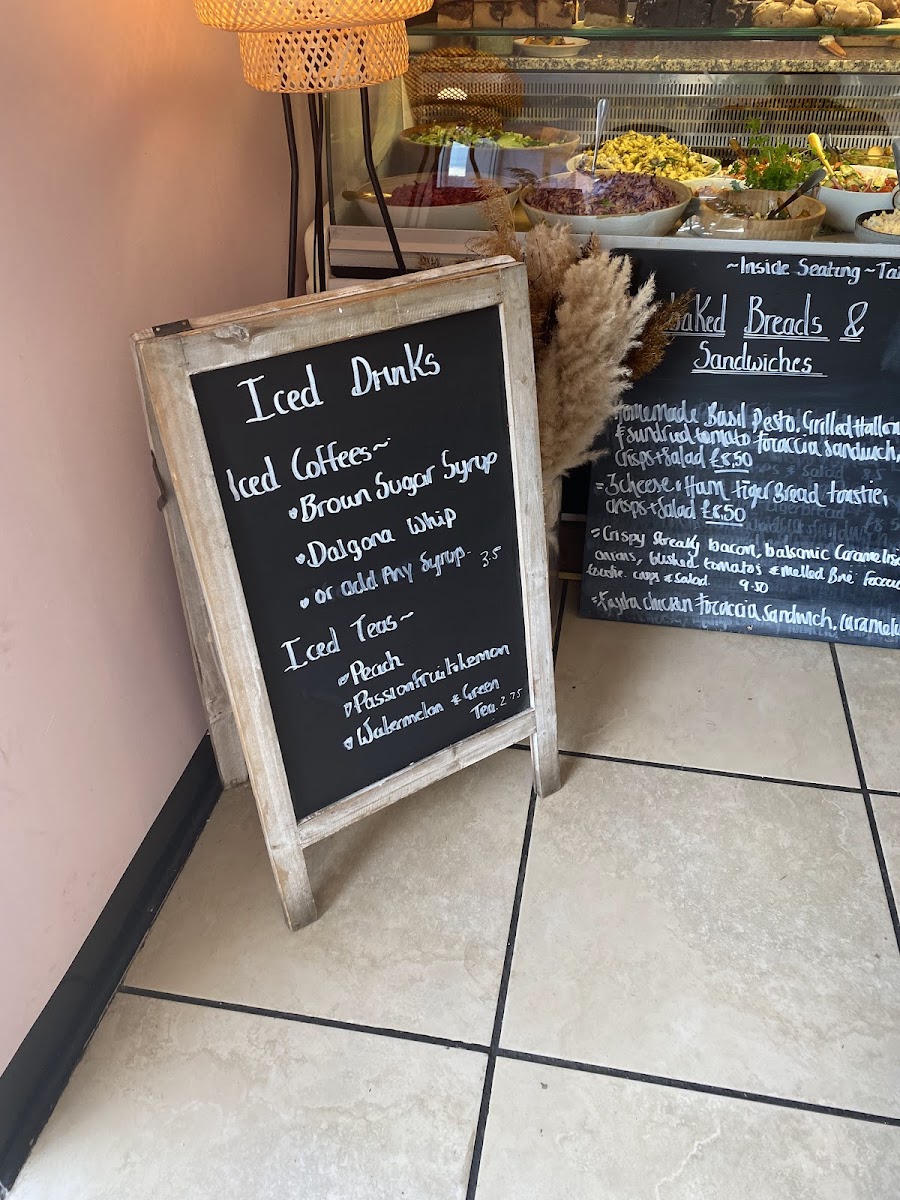 Iced Drinks
Iced Coffees~
Brown Sugar Syrup
Dalgona Whip
or add Any Syrup. 3.5
Iced Teas~
Peach
Passionfruit & Lemon
Watermelon & Green
Tea. 2.75
~Inside Seating ~Ta
aked Breads &
Sandwiches
Homemade Basil Pesto, Grilled Hallou
& sundried tomato focaccia sandwich,
crisps + Salad £8.50
= 3 cheese & Ham tiger Bread toastie,
crisps + Salad £8.50
= Crispy streaky bacon, balsamic Caramelis
onions, blushed tomato's & melted Brie focacc
toastie. crisps & Salad. 9.50
= Fajita chicken focaccia Sandwich, caramel